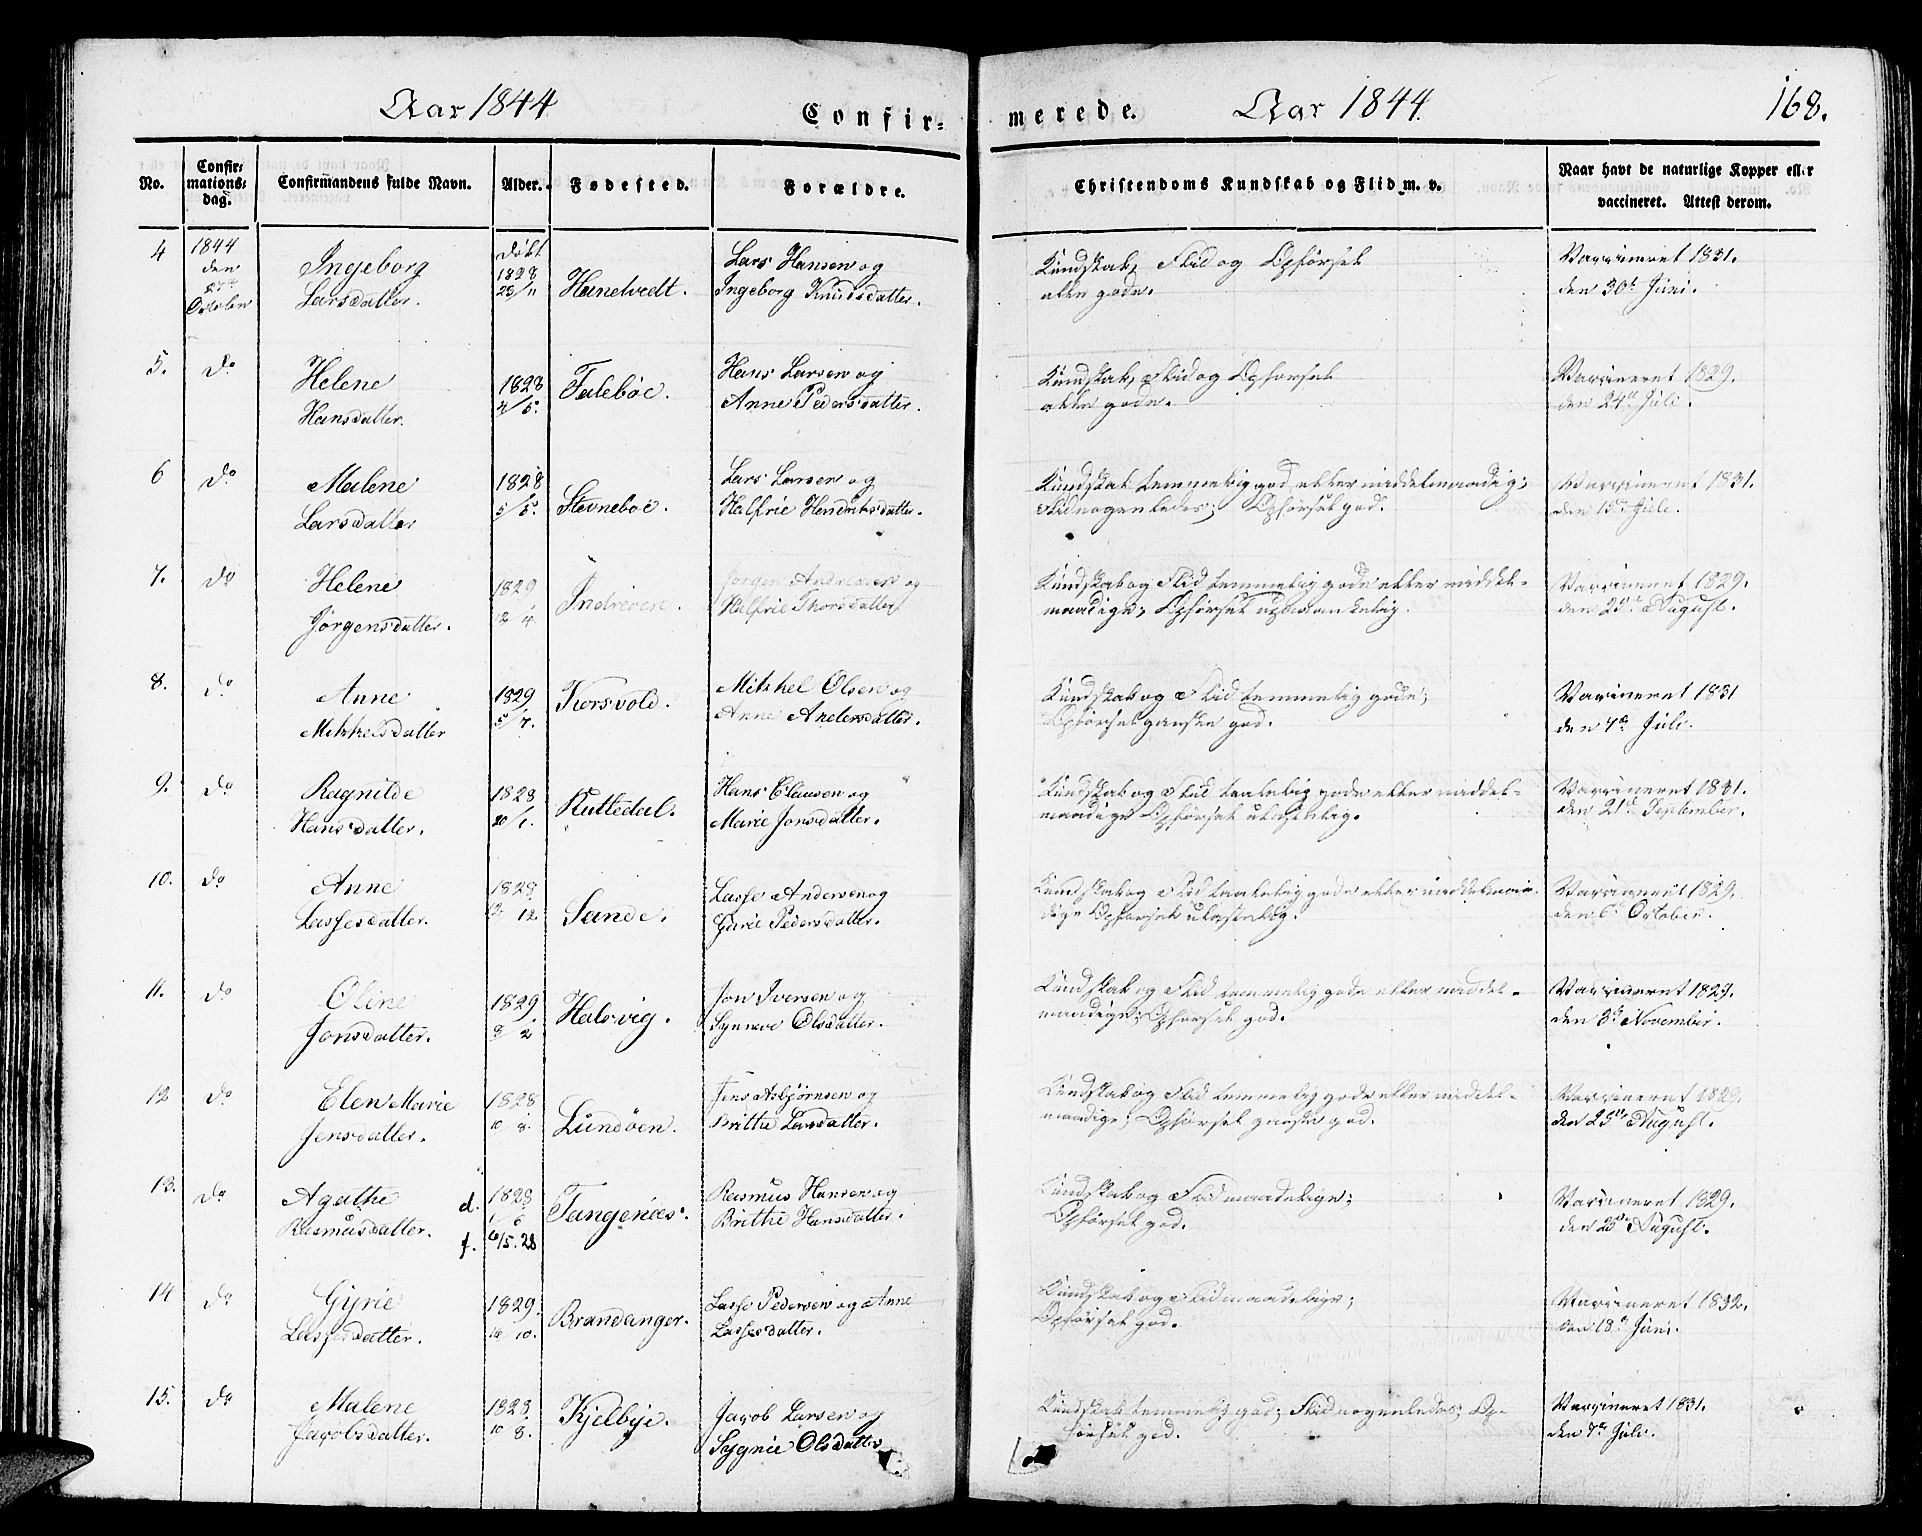 Aar 1844
Confir-
merede.
Aar 1844.
168.
No.
Confir-
mations-
dag.
Confirmandens fulde Navn.
Alder.
Fødested.
Forældre.
Christendoms Kundskab og Flid m. v.
Naar havt de naturlige Kopper eller
vaccineret. Attest derom.
4
1844
den
October
Ingeborg
Larsdatter.
Døbt
1828
23/11
Hanetvedt.
Lars Hansen og
Ingeborg Knudsdatter.
Kundskab, Flid og Opførsel
alle gode.
Vaccineret 1831.
den 30te Juni.
5.
do
Helene
Hansdatter.
1828
4/5.
Talebøe.
Hans Larsen og
Anne Pedersdatter.
Kundskab, Flid og Opførsel
alle gode.
Vaccineret 1829.
den 24de Juli.
6
do
Malene
Larsdatter
1828
5/5.
Stevnebøe.
Lars Larsen og
Halfrie Hendriksdatter.
Kundskab temmelig god eller middelmaadig;
Flid nogenledes; Opførsel god.
Vaccineret 1831.
den 15de Juli.
7.
do
Helene
Jörgensdatter.
1829
2/4.
Indreöen.
Jörgen Andersen og
Halfrie Thorsdatter
Kundskab og Flid temmelig gode eller middel-
maadige; Opførsel upaaankelig.
Vaccineret 1829.
den 25de August.
8.
do
Anne
Mikkelsdatter
1829
5/7.
Korsvold.
Mikkel Olsen og
Anne Andersdatter.
Kundskab og Flid temmelig gode;
Opførsel ganske god.
Vaccineret 1831
den 7de Juli.
9.
do
Ragnilde
Hansdatter.
1828
20/1.
Kuttedal.
Hans Clausen og
Marie Jonsdatter.
Kundskab og Flid taalelig gode eller middel-
maadige Opførsel ulastelig.
Vaccineret 1831.
den 21de September.
10.
do
Anne
Lassesdatter.
1828
12.
Sande.
Lasse Andersen og
Gurie Pedersdatter.
Kundskab og Flid taalelig gode eller middelmaa-
dige Opførsel ulastelig.
Vaccineret 1829.
den 6te October.
11.
do
Oline
Jonsdatter.
1829.
8/2
Halsvig.
Jon Iversen og
Synneve Olsdatter.
Kundskab og Flid temmelig gode eller middel-
maadige; Opførsel god.
Vaccineret 1829.
den 3de November.
12
do
Elen Marie
Jensdatter.
1828
10 8.
Lundöen.
Jens Asbjørnsen og
Brithe Larsdatter.
Kundskab og Flid temmelig gode eller middel-
maadige; Opførsel ganske god.
Vaccineret 1829.
den 25de August.
13.
do
Agathe
Rasmusdatter.
d.
f.
1828
1/6
6/5.28
Tangenæs.
Rasmus Hansen og
Brithe Hansdatter.
Kundskab og Flid maadelige;
Opførsel god.
Vaccineret 1829.
den 25de August.
14
do
Gyrie
Lassesdatter.
1829.
16 10.
Brandanger.
Lasse Pedersen og Anne
Lassesdatter.
Kundskab og Flid maadelige;
Opførsel god.
Vaccineret 1832.
den 18de Juni.
15.
do
Malene
Jacobsdatter.
1828.
10 8.
Kjelbye.
Jacob Larsen og
Sygnie Olsdatter
Kundskab temmelig god; Flid nogenledes; Op-
førsel god.
Vaccineret 1831.
den 7de Juli.